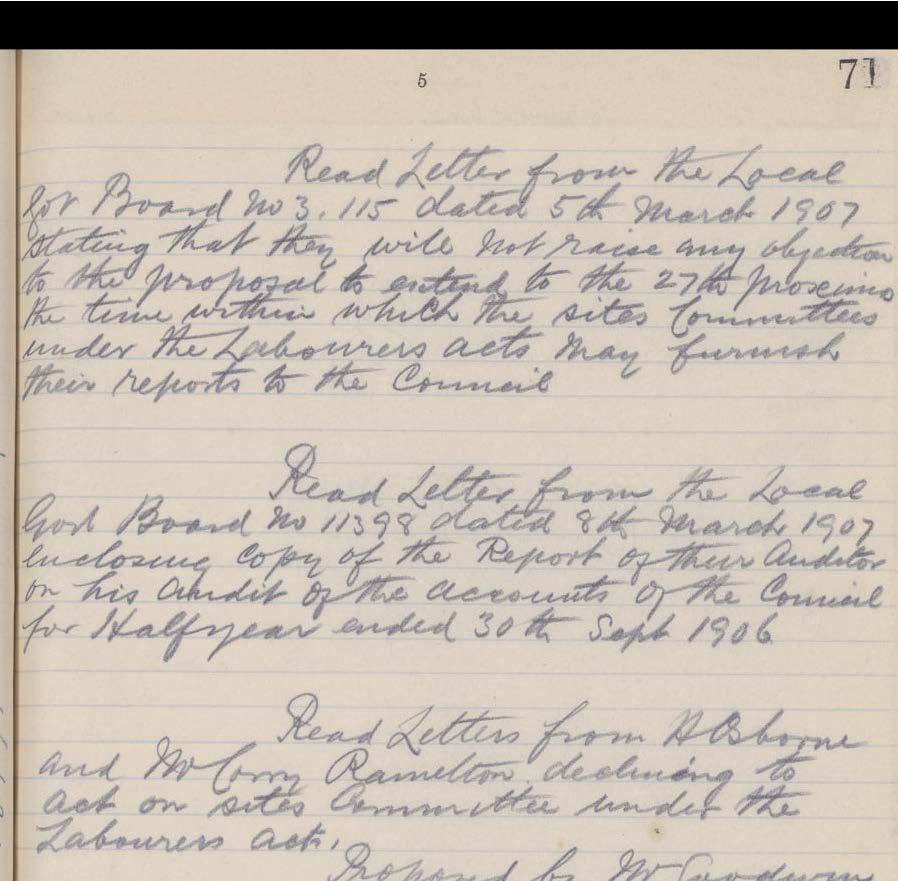 5
71
Read Letter from the Local
Gov Board No 3.115 dated 5th March 1907
stating that they will not raise any objection
to the proposal to extend to the 27th proximo
the time within which the sites Committees
under the Labourers acts may furnish
their reports to the Council
Read Letter from the Local
Govt Board No 11398 dated 8th March 1907
enclosing Copy of the Report of their Auditor
on his Audit of the accounts of the Council
for Halfyear ended 30th Sept 1906
Read Letters from H Osborne
and Wm Corry Ramelton declining to
act on sites Committee under the
Labourers act.
Proposed by Mr Goodwin